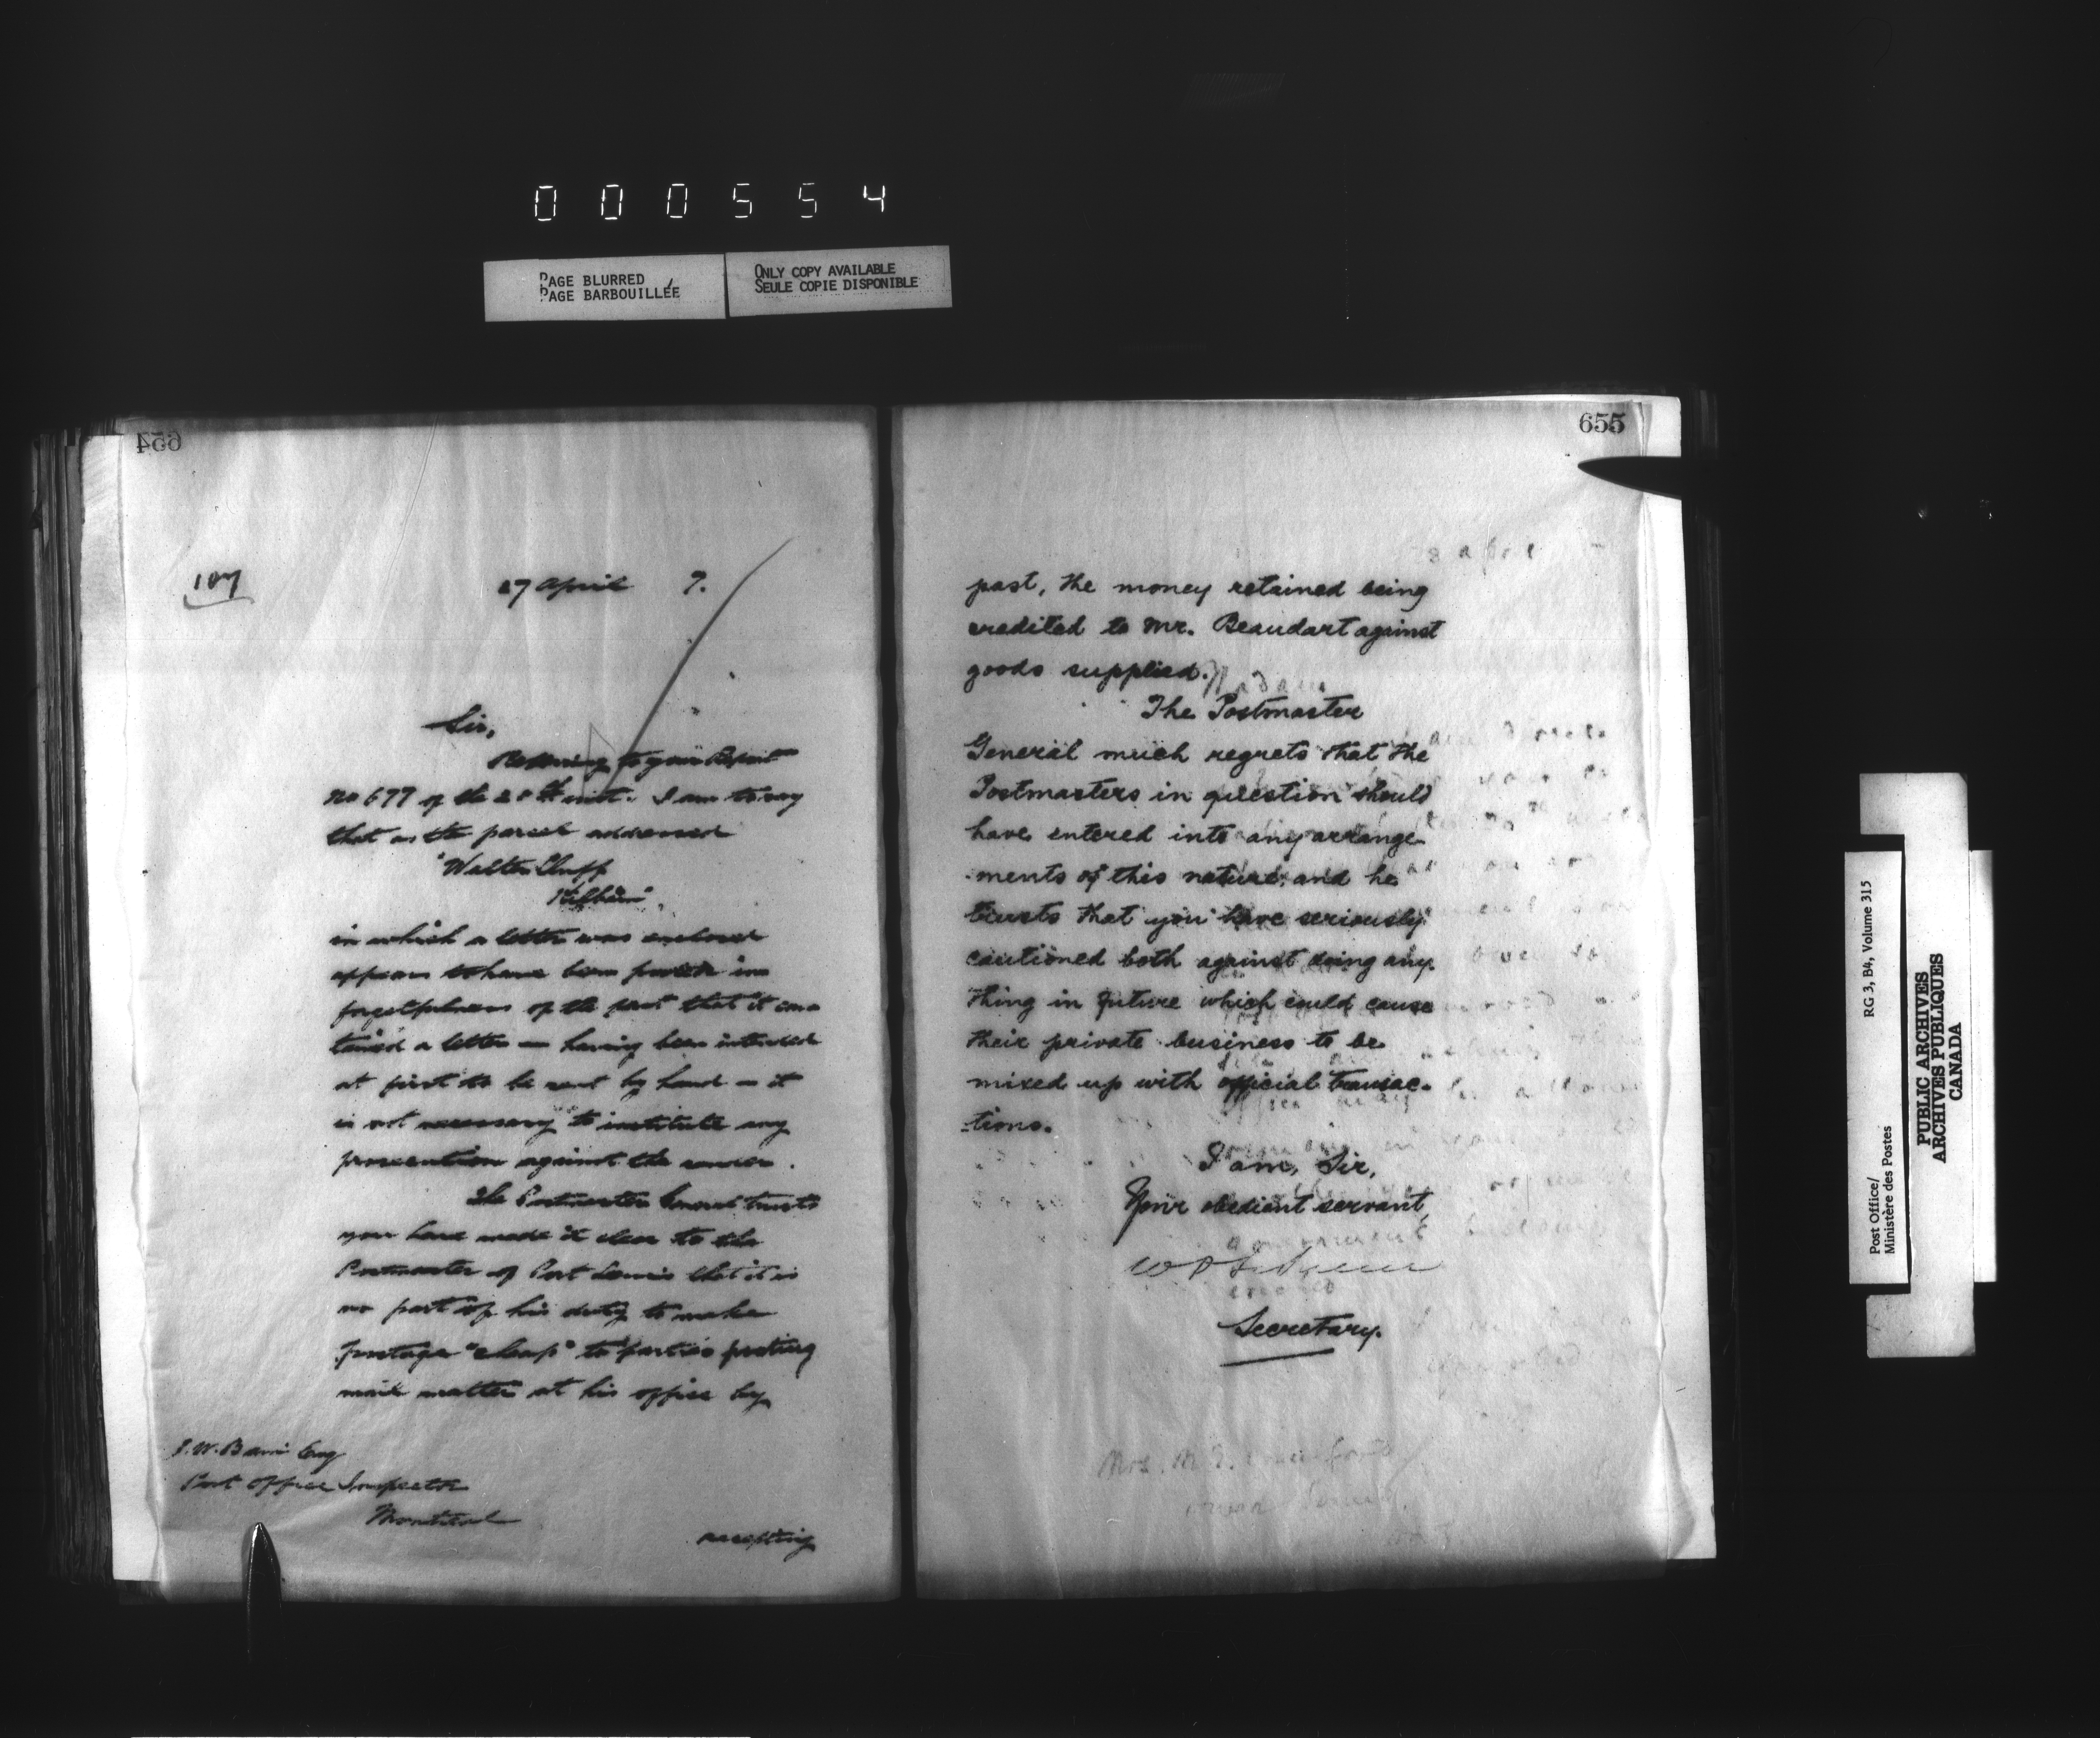 000554
PAGE BLURRED
PAGE BARBOUILLÉE
ONLY COPY AVAILABLE
SEULE COPIE DISPONIBLE
654
107
27 April 7.
Sir,
Referring to your Report
No 677 of the 20th inst. I am to say
that as the parcel addressed
"Walter Cluff
in which a letter was enclosed
appears to have been posted in
forgetfulness of the fact that it con-
tained a letter — having been intended
at first to be sent by hand — it
is not necessary to institute any
prosecution against the sender.
The Postmaster General trusts
you have made it clear to the
Postmaster of Port Lewis that it is
no part of his duty to make
postage "cheap" to parties posting
mail matter at his office by
Post Office Inspector
Montreal
accepting
655
past, the money retained being
credited to Mr. Beaudart against
goods supplied.
The Postmaster
General much regrets that the
Postmasters in question should
have entered into any arrange-
-ments of this nature, and he
trusts that you have seriously
cautioned both against doing any
thing in future which could cause
their private business to be
mixed up with official transac-
-tions.
I am, Sir,
Your obedient servant,
Secretary.
Post Office/
Ministère des Postes
RG 3, B4, Volume 315
PUBLIC ARCHIVES
ARCHIVES PUBLIQUES
CANADA